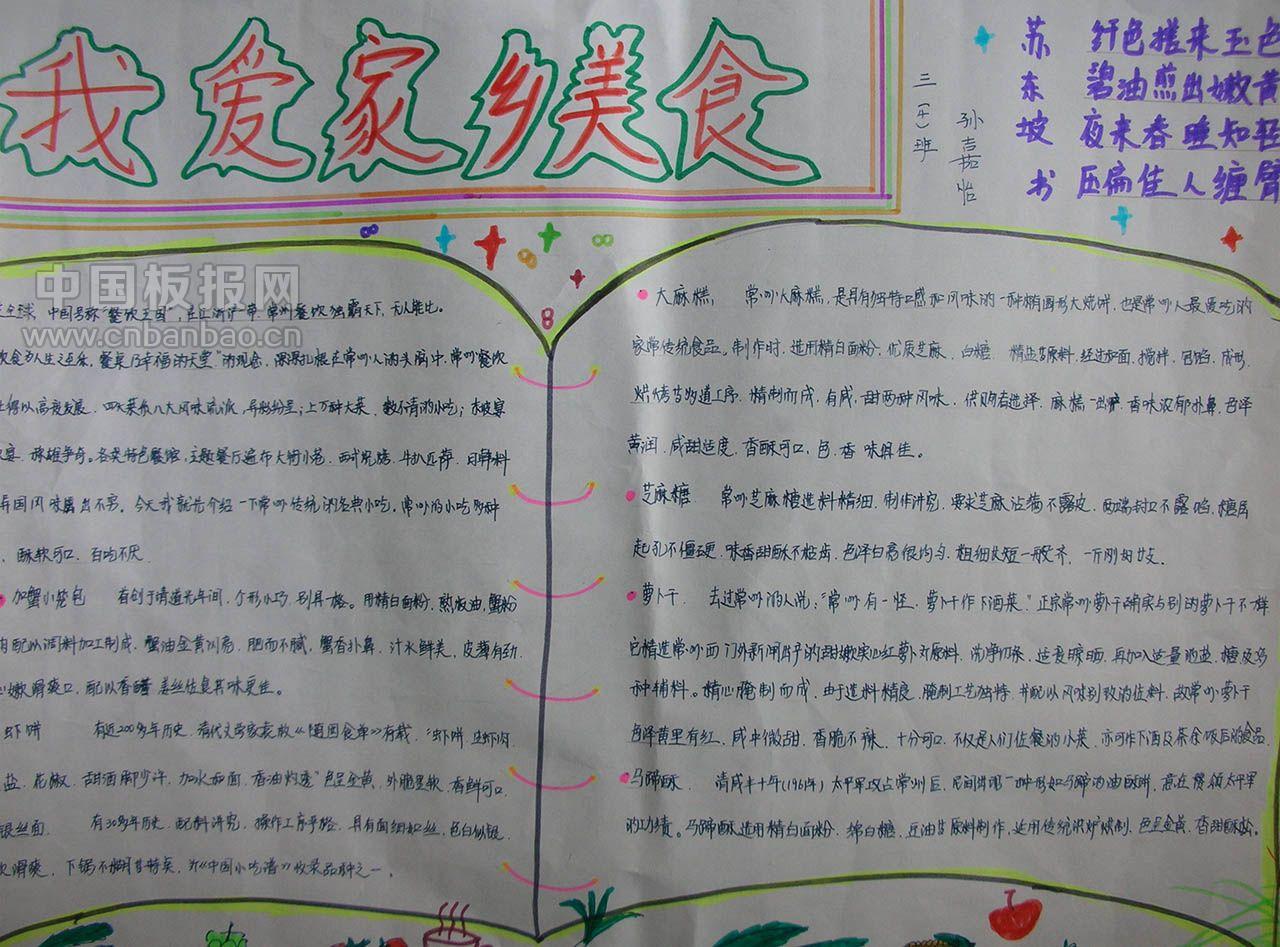 我爱家乡美食
三（4）班
孙吉茹怡
苏东坡书
纤色搓来玉色
碧油煎出嫩黄
夜来春睡知轻
压扁佳人缠臂
中国板报网
www.cnbanbao.cn
全球，中国号称“餐饮王国”，在江浙沪一带，常州餐饮独霸天下，无人能比。
饮食为人生之延系，餐桌乃幸福的天堂”的观念，深深扎根在常州人的头脑中，常州餐饮
得以高度发展，四大菜系八大风味流派，异彩纷呈；上万种大菜，数不清的小吃；
宴，雄争奇。各类特色餐馆，主题餐厅遍布大街小巷，西式 牛扒匹萨，日韩料
异国风味层出不穷。今天我就先介绍一下常州传统的经典小吃。常州的小吃多种
、酥软可口，百吃不厌
加蟹小笼包 首创于清道光年间，个形小巧，别具一格。用精白面粉，熟板油，蟹粉
肉配以调料加工制成，蟹油金黄闪亮，肥而不腻，蟹香扑鼻，汁水鲜美，皮薄有劲，
嫩滑爽口，配以香醋 姜丝佐食其味更佳。
虾饼 有近200多年历史，清代文学家袁枚《随园食单》有载，“虾饼 生虾肉，
盐，花椒，甜酒脚少许，加水和面，香油灼透”色呈金黄，外脆里软，香鲜可口
银丝面 有30多年历史，配料讲究，操作工序严格，具有面细如丝，色白似银，
滑爽，下锅不糊等特点，为《中国小吃谱》收录品种之一。
大麻糕， 常州大麻糕，是具有独特口感和风味的一种椭圆形大烧饼，也是常州人最爱吃的
家常传统食品。制作时，选用精白面粉、优质芝麻、白糖、 精盐等原料，经过和面，搅拌，包馅，成形，
烘烤等多道工序，精制而成，有咸，甜两种风味，供购者选择，麻糕一出炉，香味浓郁扑鼻，色泽
黄润，咸甜适度，香酥可口，色，香 味俱佳。
芝麻糖 常州芝麻糖选料精细，制作讲究，要求芝麻沾满不露皮，两端封口不露馅，糖层
起孔不僵硬，味香甜酥不粘齿，色泽白亮很均匀，粗细长短一般齐，一斤刚好廿支。
萝卜干． 去过常州的人说，“常州有一怪，萝卜干作下酒菜。”正宗常州萝卜干确实与别的萝卜干不一样
它精选常州西门外新闸出产的甜嫩实心红萝卜为原料，洗净切条，适度晾晒，再加入适量的盐，糖及多
种辅料。精心腌制而成，由于选料精良，腌制工艺独特，并配以风味别致的佐料，故常州萝卜干
色泽黄里有红，咸中微甜，香脆不辣，十分可口，不仅是人们佐餐的小菜，亦可作下酒及茶余饭后的食品
马蹄酥． 清咸丰十年（1961年）太平军攻占常州后，民间出现一种形如马蹄的油酥饼，意在赞颂太平军
的功绩。马蹄酥选用精白面粉，绵白糖，豆油等原料制作，运用传统泥炉烘制，色呈金黄，香甜酥松。